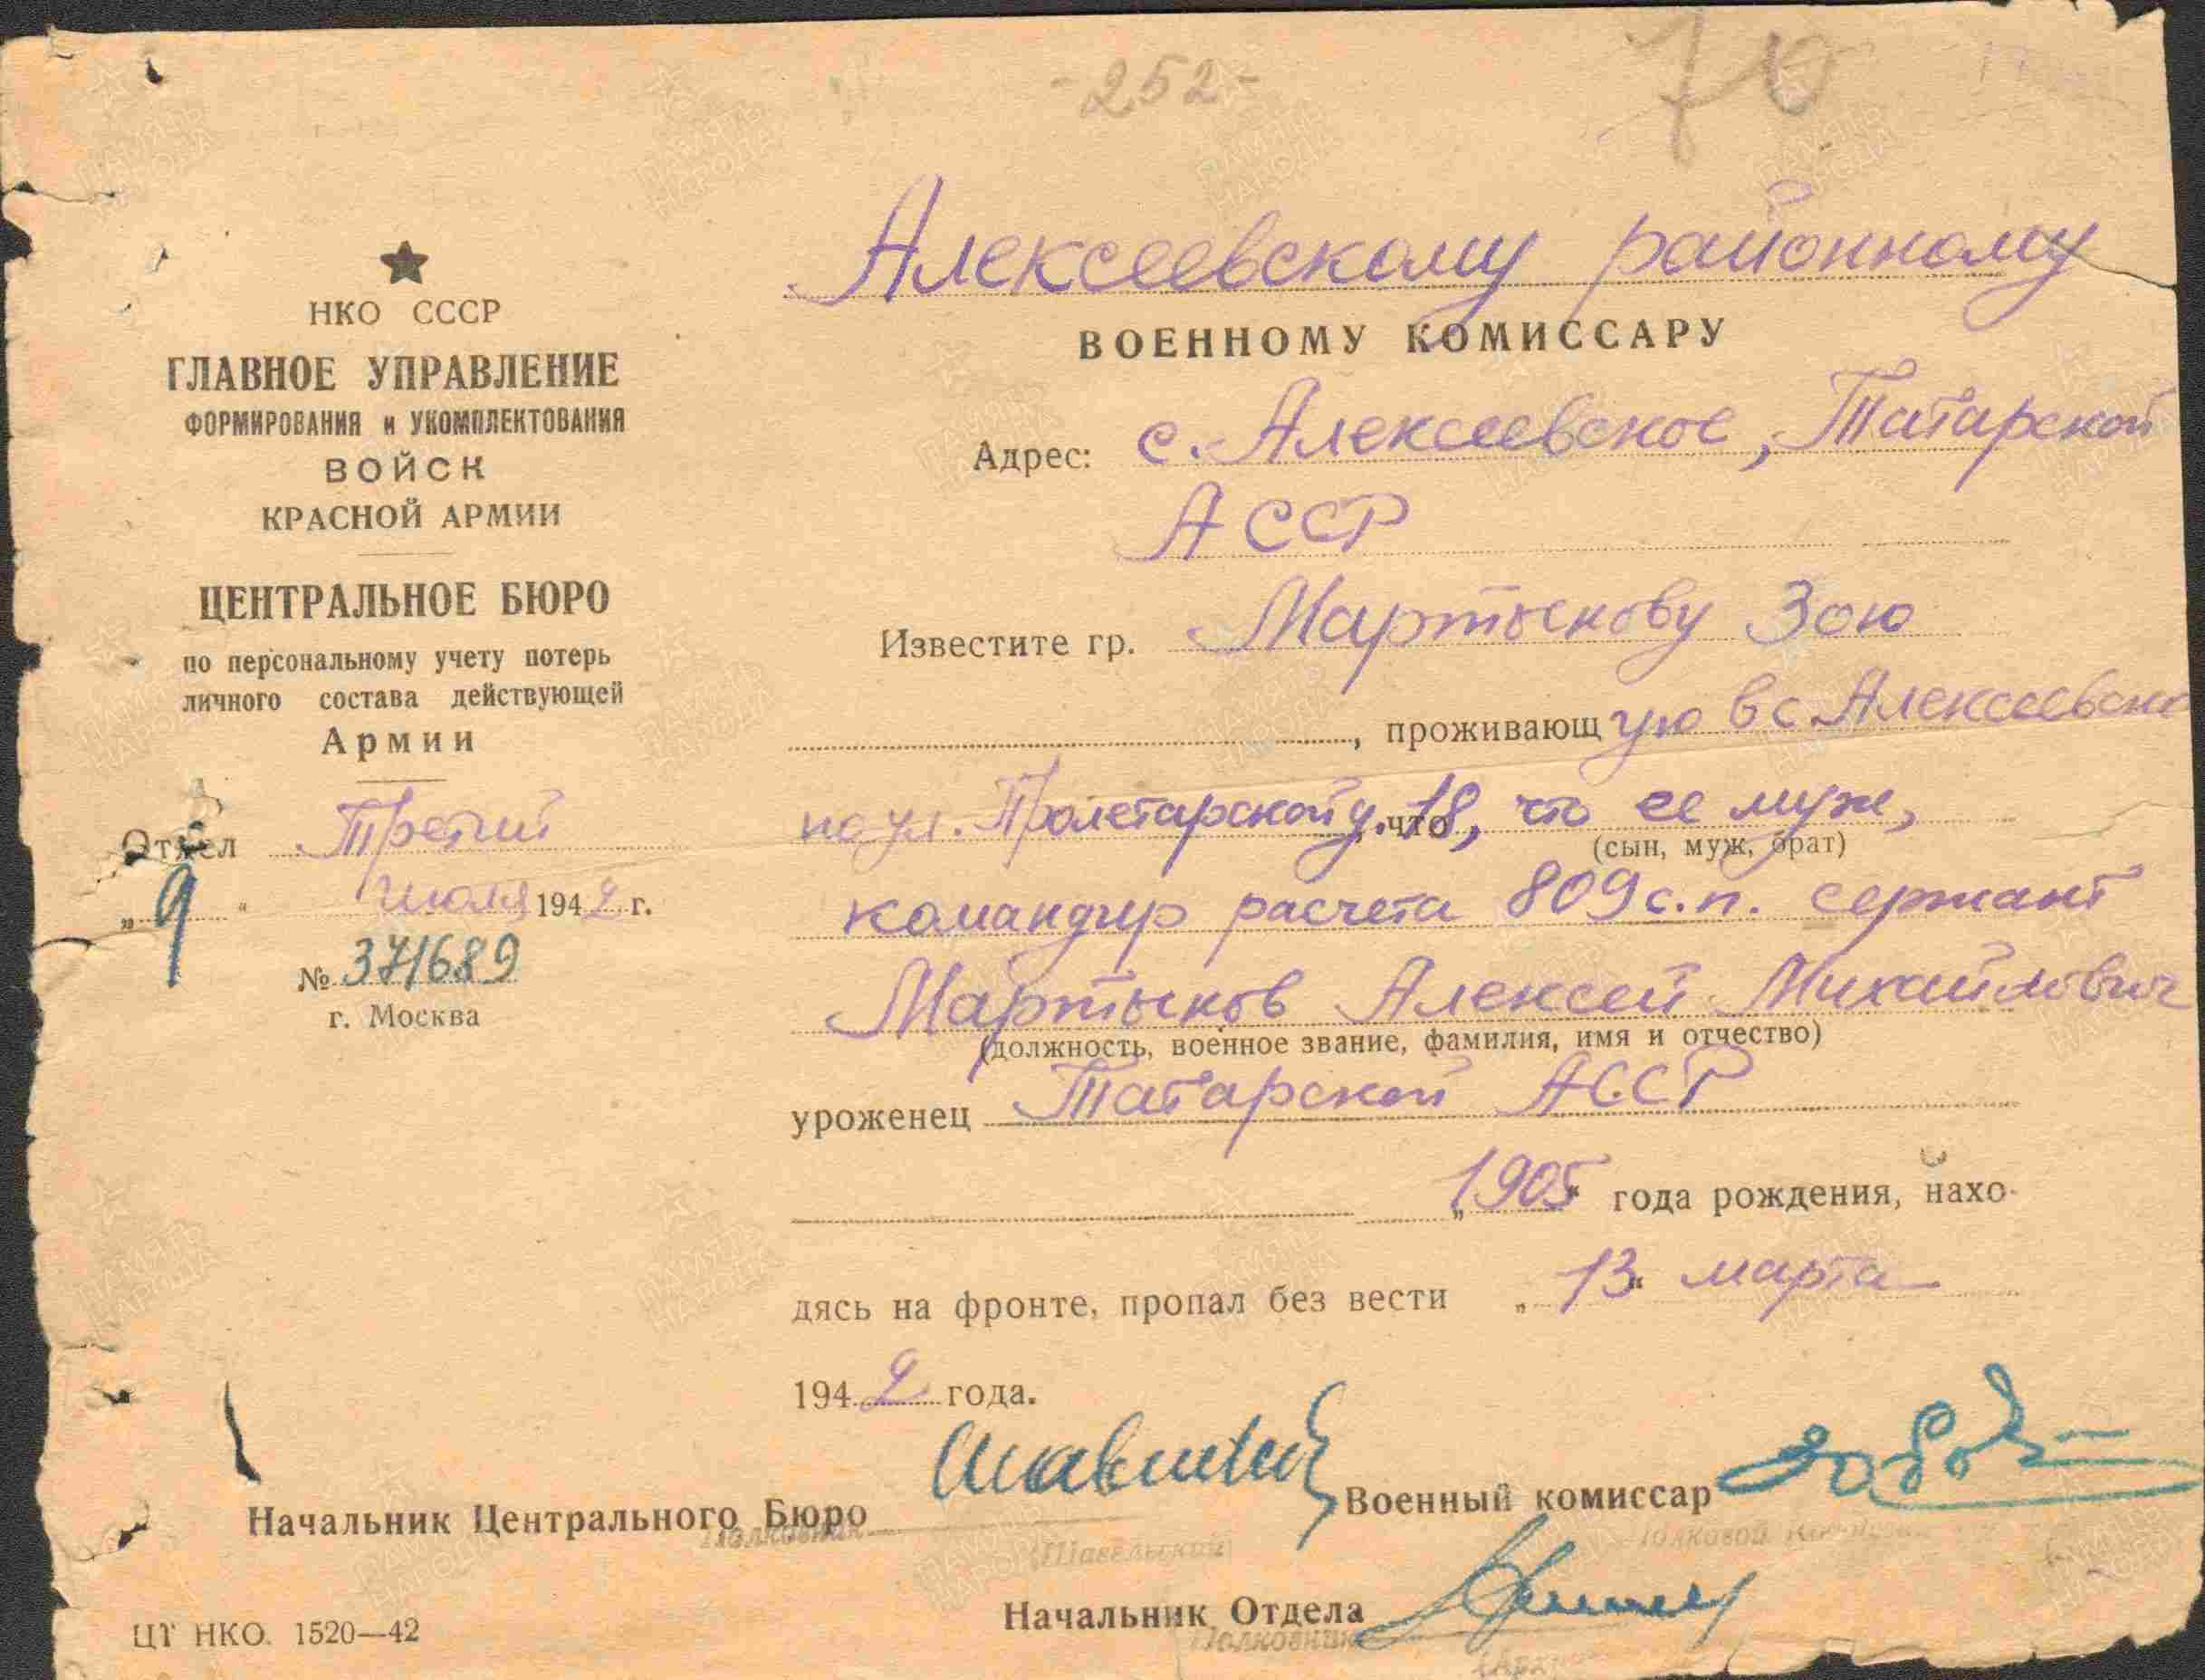 -252-
70
★
НКО СССР
ГЛАВНОЕ УПРАВЛЕНИЕ
ФОРМИРОВАНИЯ и УКОМПЛЕКТОВАНИЯ
ВОЙСК
КРАСНОЙ АРМИИ
ЦЕНТРАЛЬНОЕ БЮРО
по персональному учету потерь
личного состава действующей
Армии
Отдел Третий
„9“ июля 1942 г.
№ 371689
г. Москва
Алексеевскому районному
ВОЕННОМУ КОМИССАРУ
Адрес: с. Алексеевское, Татарской
АССР
Известите гр. Мартынову Зою
, проживающую в с Алексеевско
по ул. Пролетарской д. 18, что ее муж,
что
(сын, муж, брат)
командир расчета 809 с.п. сержант
Мартынов Алексей Михайлович
(должность, военное звание, фамилия, имя и отчество)
уроженец Татарской АССР
„1905“ года рождения, нахо-
дясь на фронте, пропал без вести „13“ марта
1942 года.
Начальник Центрального Бюро
Полковник
(Шавельский)
Военный комиссар
Полковой
Начальник Отдела
Полковник
ЦТ НКО. 1520—42
ПАМЯТЬ НАРОДА